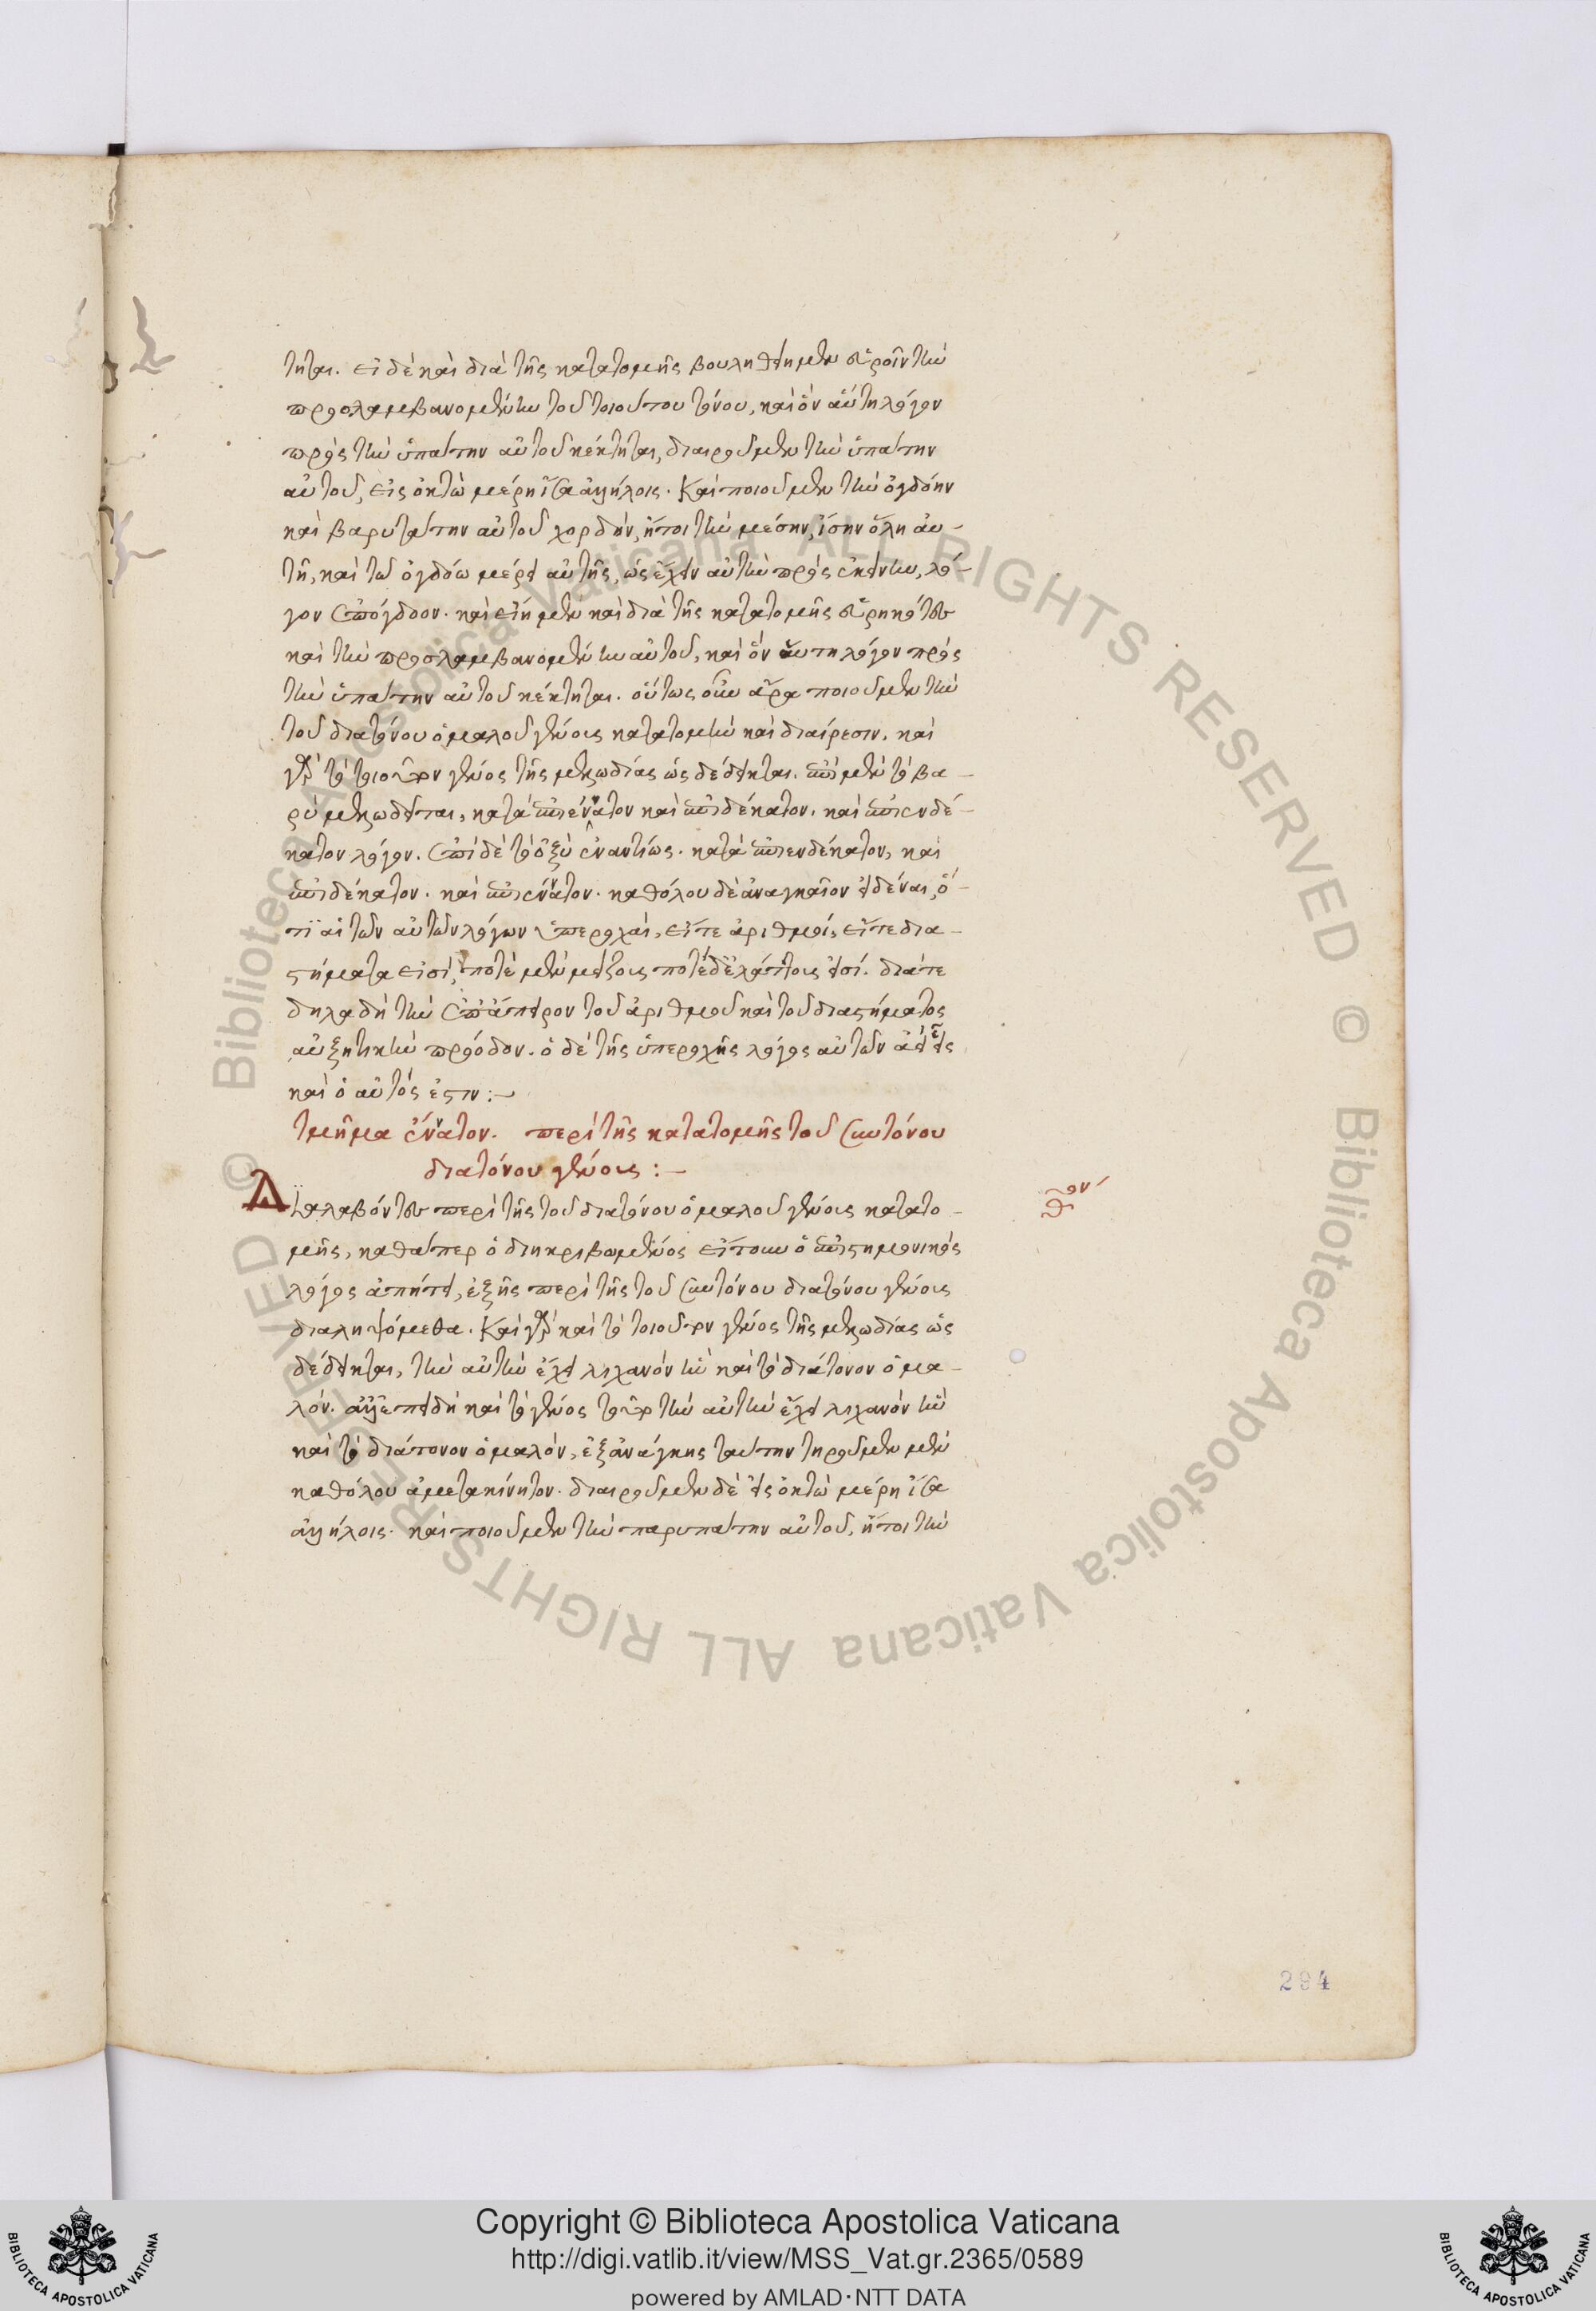 τηται. εἰ δὲ καὶ διὰ τῆς κατατομῆς βουληθείημεν εὑρεῖν τὴν
προσλαμβανομένην τοῦ τοιούτου τόνου, καὶ ὃν αὕτη λόγον
πρὸς τὴν ὑπάτην αὐτοῦ κέκτηται, διαιροῦμεν τὴν ὑπάτην
αὐτοῦ, εἰς ὀκτὼ μέρη ἴσα ἀλλήλοις. Καὶ ποιοῦμεν τὴν ὀγδόην
καὶ βαρυτάτην αὐτοῦ χορδήν, ἤτοι τὴν μέσην, ἴσην ὅλη αυ-
τῇ, καὶ τῶ ὀγδόω μέρει αὐτῆς, ὡς ἔχειν αὐτὴν πρὸς ἐκείνην, λό-
γον ἐπόγδοον. καὶ εἴημεν καὶ διὰ τῆς κατατομῆς εὑρηκότες
καὶ τὴν προσλαμβανομένην αὐτοῦ, καὶ ὃν αὕτη λόγον πρὸς
τὴν ὑπάτην αὐτοῦ κέκτηται. οὕτως οὖν ἄρα ποιοῦμεν τὴν
τοῦ διατόνου ὁμαλοῦ γένους κατατομὴν καὶ διαίρεσιν. καὶ
γὰρ τὸ τοιοῦτον γένος τῆς μελωδίας ὡς δέδεικται. ἐπὶ μὲν τὸ βα-
ρὺ μελωδεῖται, κατὰ ἐπιέννατον καὶ ἐπιδέκατον. καὶ ἐπιενδέ-
κατον λόγον. ἐπὶ δὲ τὸ ὀξὺ ἐναντίως. κατὰ ἐπιενδέκατον, καὶ
ἐπιδέκατον. καὶ ἐπιέννατον. καθόλου δὲ ἀναγκαῖον εἰδέναι, ὅ-
τι αἱ τῶν αὐτῶν λόγων ὑπεροχαί, εἴτε ἀριθμοί, εἴτε δια-
στήματα εἰσί, ποτὲ μὲν μείζους ποτὲ δὲ ἐλάττους εἰσί. διά τε
δηλαδὴ τὴν ἐπ' ἄπειρον τοῦ ἀριθμοῦ καὶ τοῦ διαστήματος
αὐξητικὴν πρόοδον. ὁ δὲ τῆς ὑπεροχῆς λόγος αὐτῶν ἀεὶ εἷς
καὶ ὁ αὐτός ἐστιν:—
τμῆμα ἔννατον. περὶ τῆς κατατομῆς τοῦ συντόνου
διατόνου γένους:—
Διαλαβόντες περὶ τῆς τοῦ διατόνου ὁμαλοῦ γένους κατατο-
μῆς, καθάπερ ὁ διηκριβωμένος εἴτουν ὁ ἐπιστημονικὸς
λόγος ἀπήτει, ἑξῆς περὶ τῆς τοῦ συντόνου διατόνου γένους
διαληψόμεθα. Καὶ γὰρ καὶ τὸ τοιοῦτον γένος τῆς μελωδίας ὡς
δέδεικται, τὴν αὐτὴν ἔχει λιχανὸν ἣν καὶ τὸ διάτονον ὁμα-
λόν. ἀλλ' ἐπειδὴ καὶ τὸ γένος τοῦτο τὴν αὐτὴν ἔχει λιχανὸν ἣν
καὶ τὸ διάτονον ὁμαλόν, ἐξ ἀνάγκης ταύτην τηροῦμεν μὲν
καθόλου ἀμετακίνητον. διαιροῦμεν δὲ εἰς ὀκτὼ μέρη ἴσα
ἀλλήλοις. καὶ ποιοῦμεν τὴν παρυπάτην αὐτοῦ, ἤτοι τὴν
θον
294
© Biblioteca Apostolica Vaticana ALL RIGHTS RESERVED © Biblioteca Apostolica Vaticana ALL RIGHTS RESERVED
Copyright © Biblioteca Apostolica Vaticana
http://digi.vatlib.it/view/MSS_Vat.gr.2365/0589
powered by AMLAD·NTT DATA
BIBLIOTECA APOSTOLICA VATICANA
BIBLIOTECA APOSTOLICA VATICANA